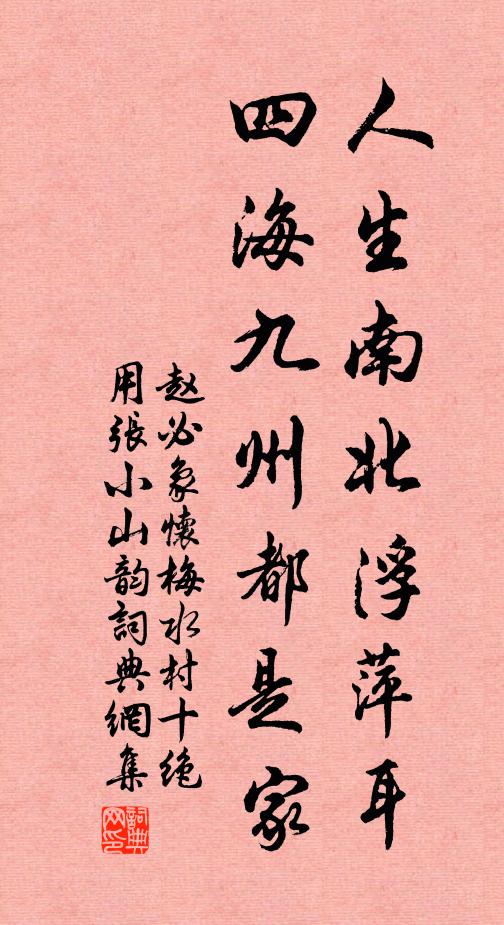 人生南北浮萍耳
四海九州都是家
赵必象懷梅水村十绝
用張小山韵詞典網集
詞典網印